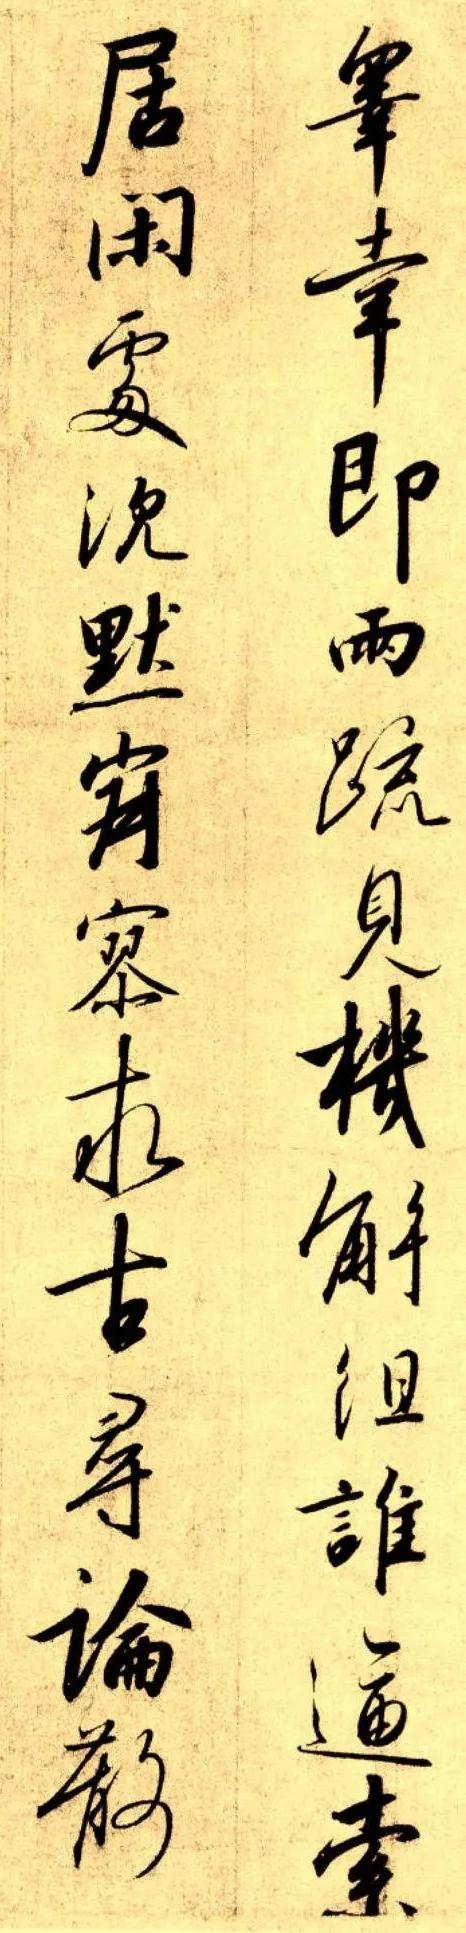 皋幸即兩疏見機解組誰逼索
居閑處沉默寂寥求古尋論散